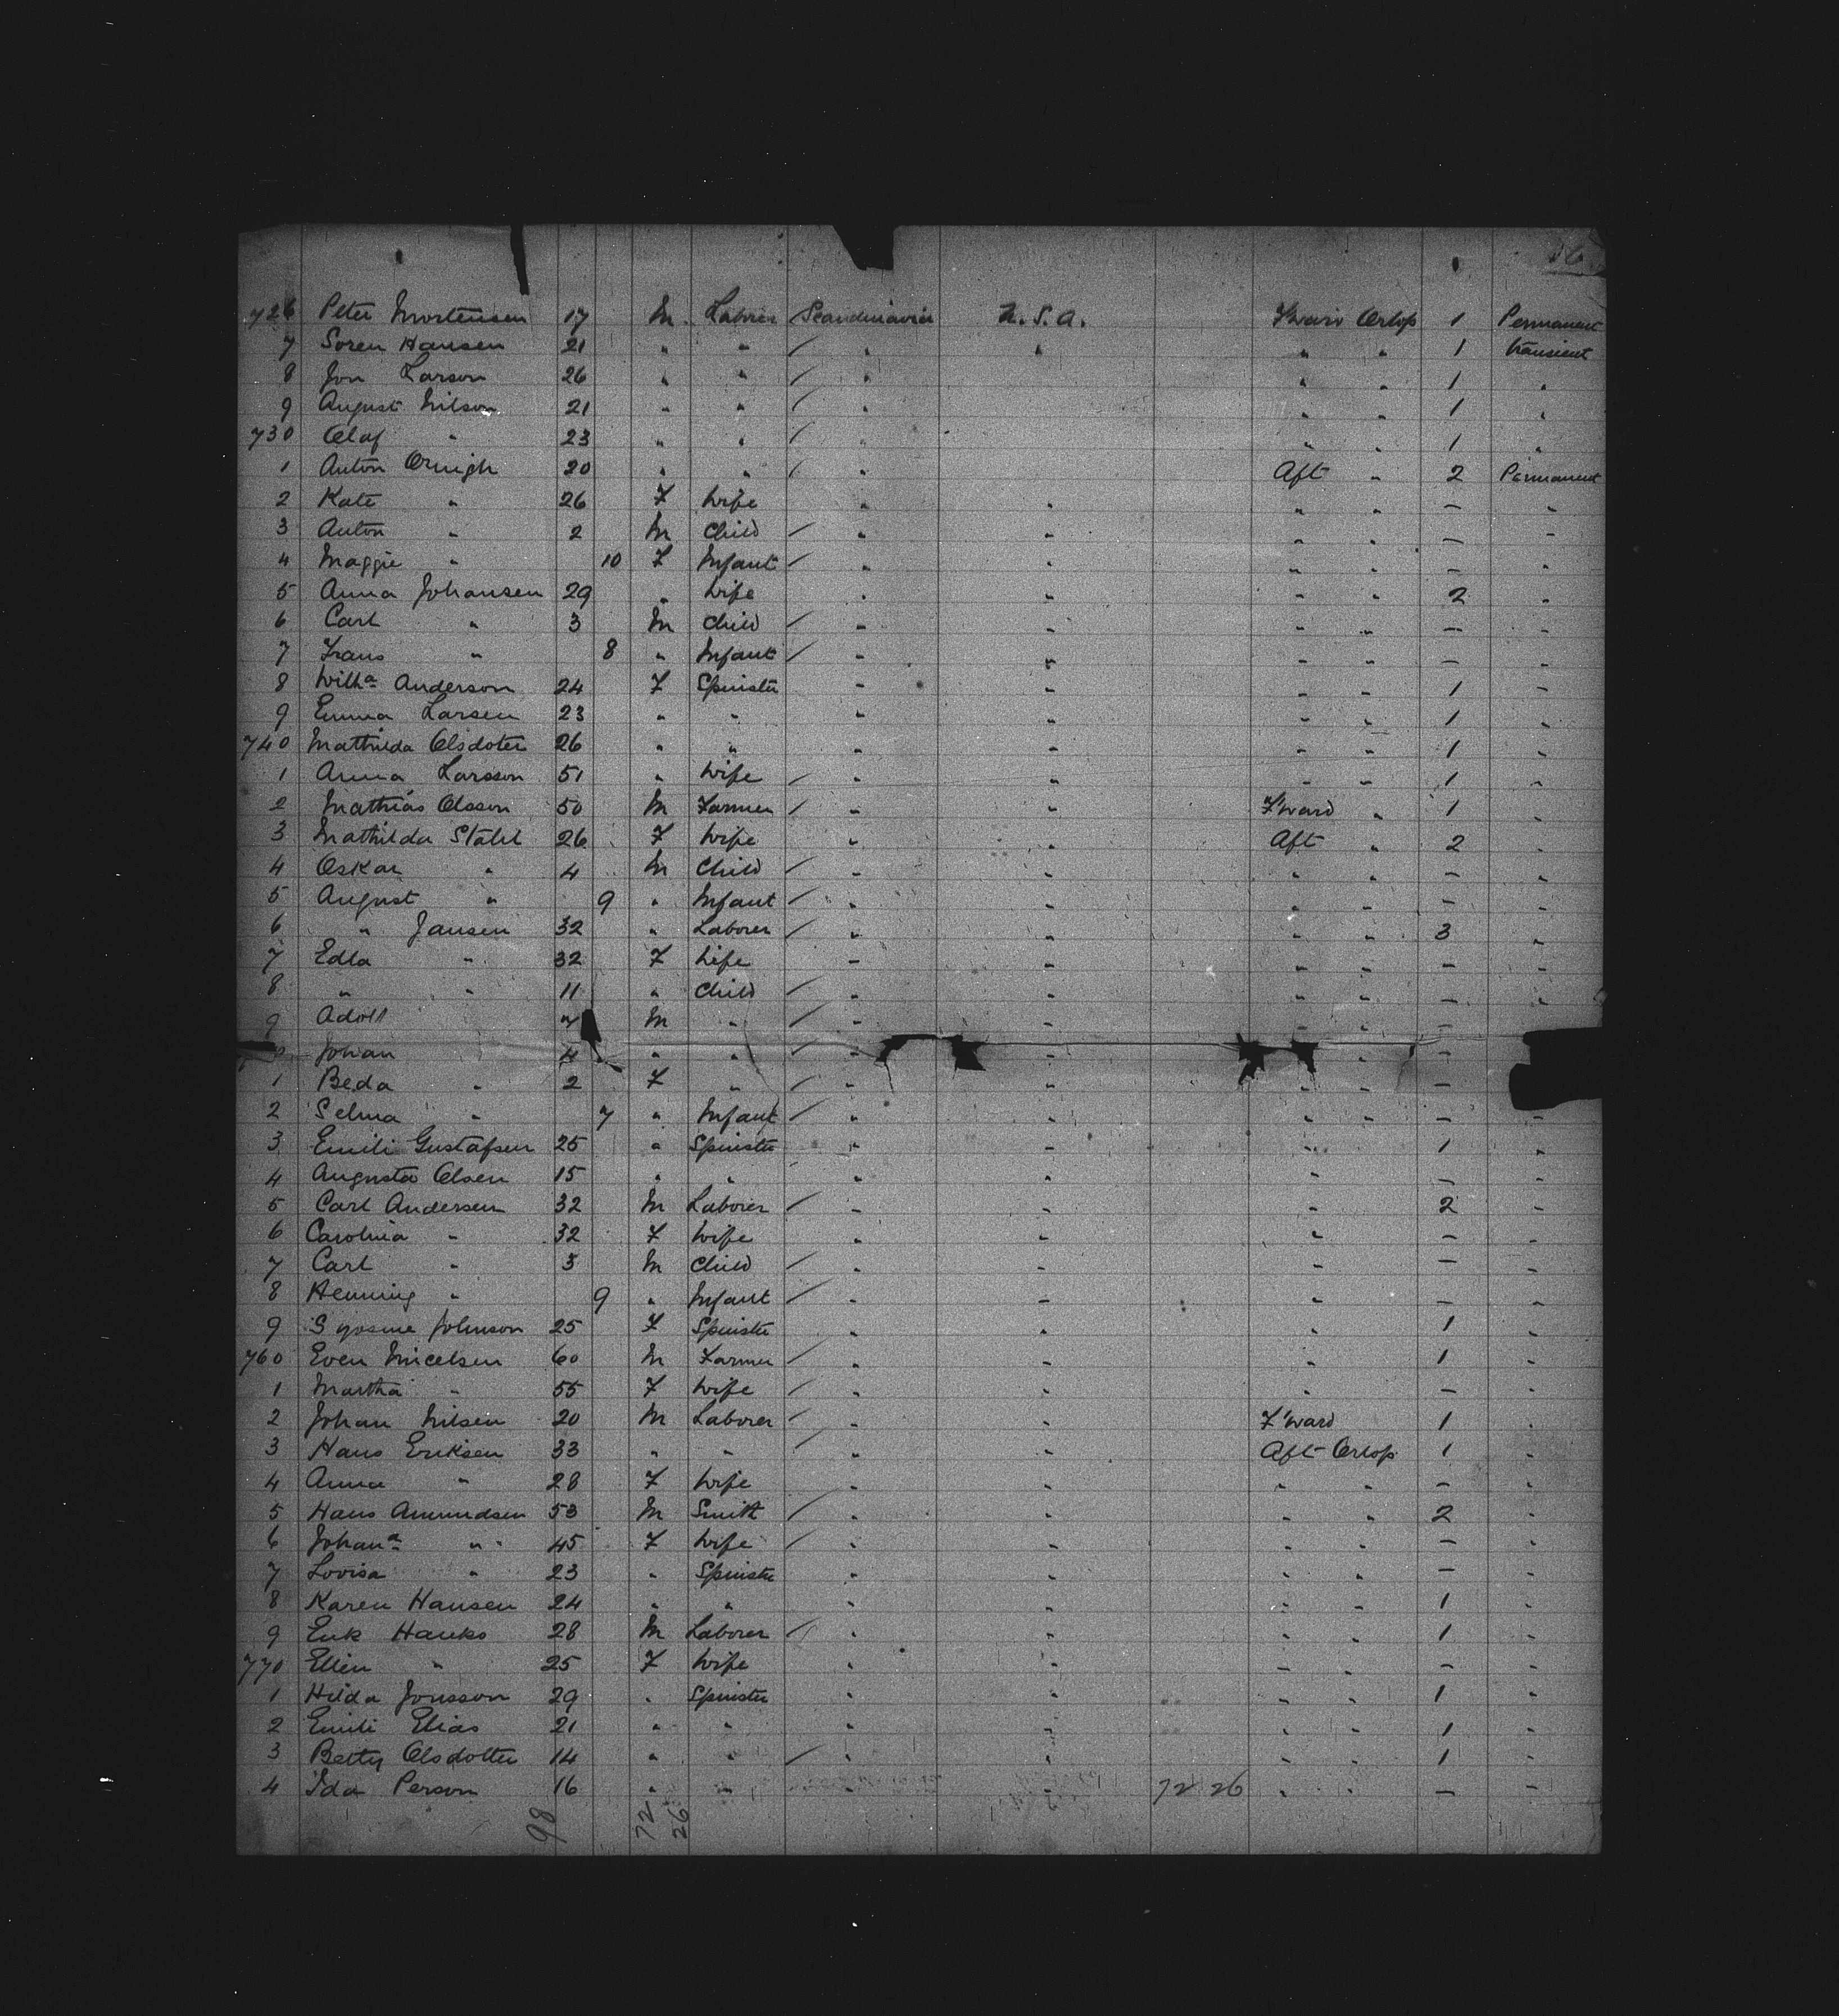 726 Peter Mortensen 17 M. Laborer Scandinavia U.S.A. F'ward Orlop 1 Permanent
7 Soren Hansen 21 " " / " " " " 1 transient
8 Jon Larson 26 " " / " " " 1 "
9 August Nilson 21 " " / " " " 1 "
730 Olaf " 23 " " / " " " 1 "
1 Anton 20 " " / " Aft " 2 Permanent
2 Kate " 26 F Wife " " " " — "
3 Anton " 2 M Child / " " " " — "
4 Maggie " 10 F Infant / " " " " — "
5 Anna Johansen 29 " Wife " " " " 2 "
6 Carl " 3 M Child / " " " " — "
7 Frans " 8 " Infant / " " " " — "
8 Wilha Anderson 24 F Spinster " " " " 1 "
9 Emma Larsen 23 " " " " " " 1 "
740 Mathilda Olsdoter 26 " " " " " " 1 "
1 Anna Larsson 51 " Wife / " " " " 1 "
2 Mathias Olsson 50 M Farmer / " " F'ward " 1 "
3 Mathilda Stahl 26 F Wife " " Aft " 2 "
4 Oskar " 4 M Child / " " " " — "
5 August " 9 " Infant / " " " " — "
6 " Jansen 32 " Laborer / " " " " 3 "
7 Edla " 32 F Wife " " " " — "
8 " " 11 " Child / " " " " — "
9 Adolf 7 M " / " " " " —
Johan 4 " " / " " " —
1 Beda " 2 F " / " " " " —
2 Selma " 7 " Infant / " " " " — "
3 Emili Gustafsen 25 " Spinster " " " 1 "
4 Augusta Olsen 15 " " " " " — "
5 Carl Andersen 32 M Laborer / " " " 2 "
6 Carolina " 32 F Wife " " " — "
7 Carl " 3 M Child / " " " — "
8 Henning " 9 " Infant / " " " — "
9 Johnson 25 F Spinster " " " 1 "
760 Even Micelsen 60 M Farmer / " " " 1 "
1 Martha " 55 F Wife / " " " — "
2 Johan Nilsen 20 M Laborer / " " F'ward 1 "
3 Hans Eriksen 33 " " / " " Aft Orlop 1 "
4 Anna " 28 F Wife " " " " — "
5 Hans Amundsen 53 M Smith / " " " " 2 "
6 Johana " 45 F Wife / " " " " — "
7 Lovisa " 23 " Spinster " " " " — "
8 Karen Hansen 24 " " " " " " 1 "
9 Erik Hanks 28 M Laborer / " " " " 1 "
770 Ellen " 25 F Wife " " " " — "
1 Hilda Jonsson 29 " Spinster " " " " 1 "
2 Emili Elias 21 " " " " " " 1 "
3 Betty Olsdotter 14 " " / " " " " 1 "
4 Ida Person 16 " " " " 72 26 " " — "
98 72 26